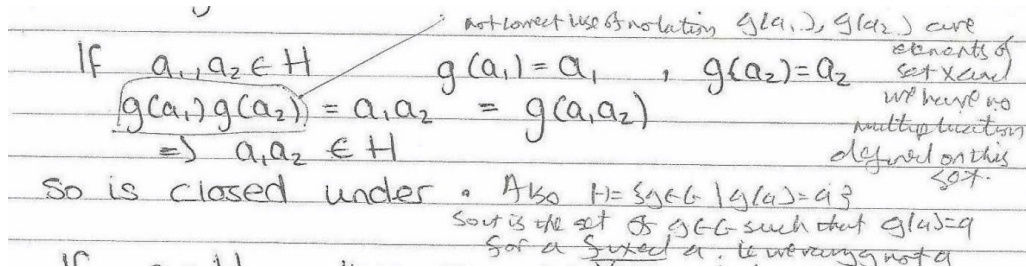 not correct use of notation g(a₁), g(a₂) are
elements of
set X and
we have no
multiplication
defined on this
set.
If a₁, a₂ ∈ H g(a₁) = a₁ , g(a₂) = a₂
g(a₁) g(a₂) = a₁a₂ = g(a₁a₂)
=> a₁a₂ ∈ H
So is closed under . Also H = {g∈G | g(a) = a}
so it is the set of g∈G such that g(a)=a
for a fixed a. ie we vary g not a
If